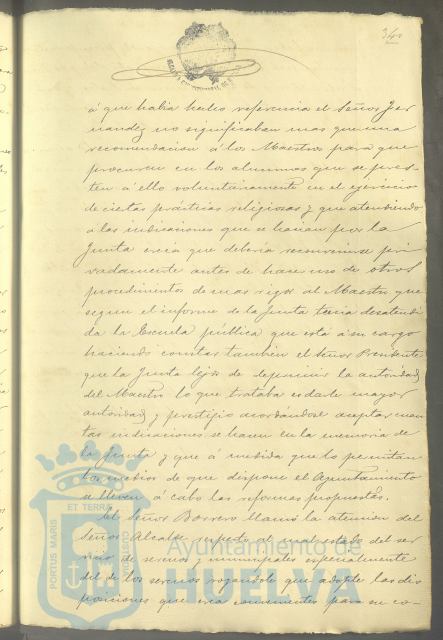 á que había hecho referencia el Señor Fer
nandez no significaban mas que una
recomendacion á los Maestros para que
procuren en los alumnos que se pres-
ten á ello voluntariamente en el ejercicio
de ciertas prácticas religiosas y que atendiendo
á las indicaciones que se hacian por la
Junta creia que debería reconvenirse pri
vadamente antes de hacer uso de otros
procedimientos de mas rigor al Maestro que
segun el informe de la Junta tenia desatendi
da la Escuela pública que está á su cargo
haciendo constar tambien el Señor Presidente
que la Junta lejos de deprimir la autoridad
del Maestro lo que trataba es darle mayor
autoridad y prestigio acordándose aceptar cuan
tas indicaciones se hacen en la memoria de
la Junta y que á medida que lo permitan
los medios de que dispone el Ayuntamiento
se lleven á cabo las reformas propuestas.
El Señor Borrero llamó la atencion del
Señor Alcalde respecto al mal estado del ser
vicio de serenos y municipales especialmente
del de los serenos rogandole que adopte las dis
posiciones que crea convenientes para su co-
Ayuntamiento de
HUELVA
PORTUS MARIS
ET TERRAE